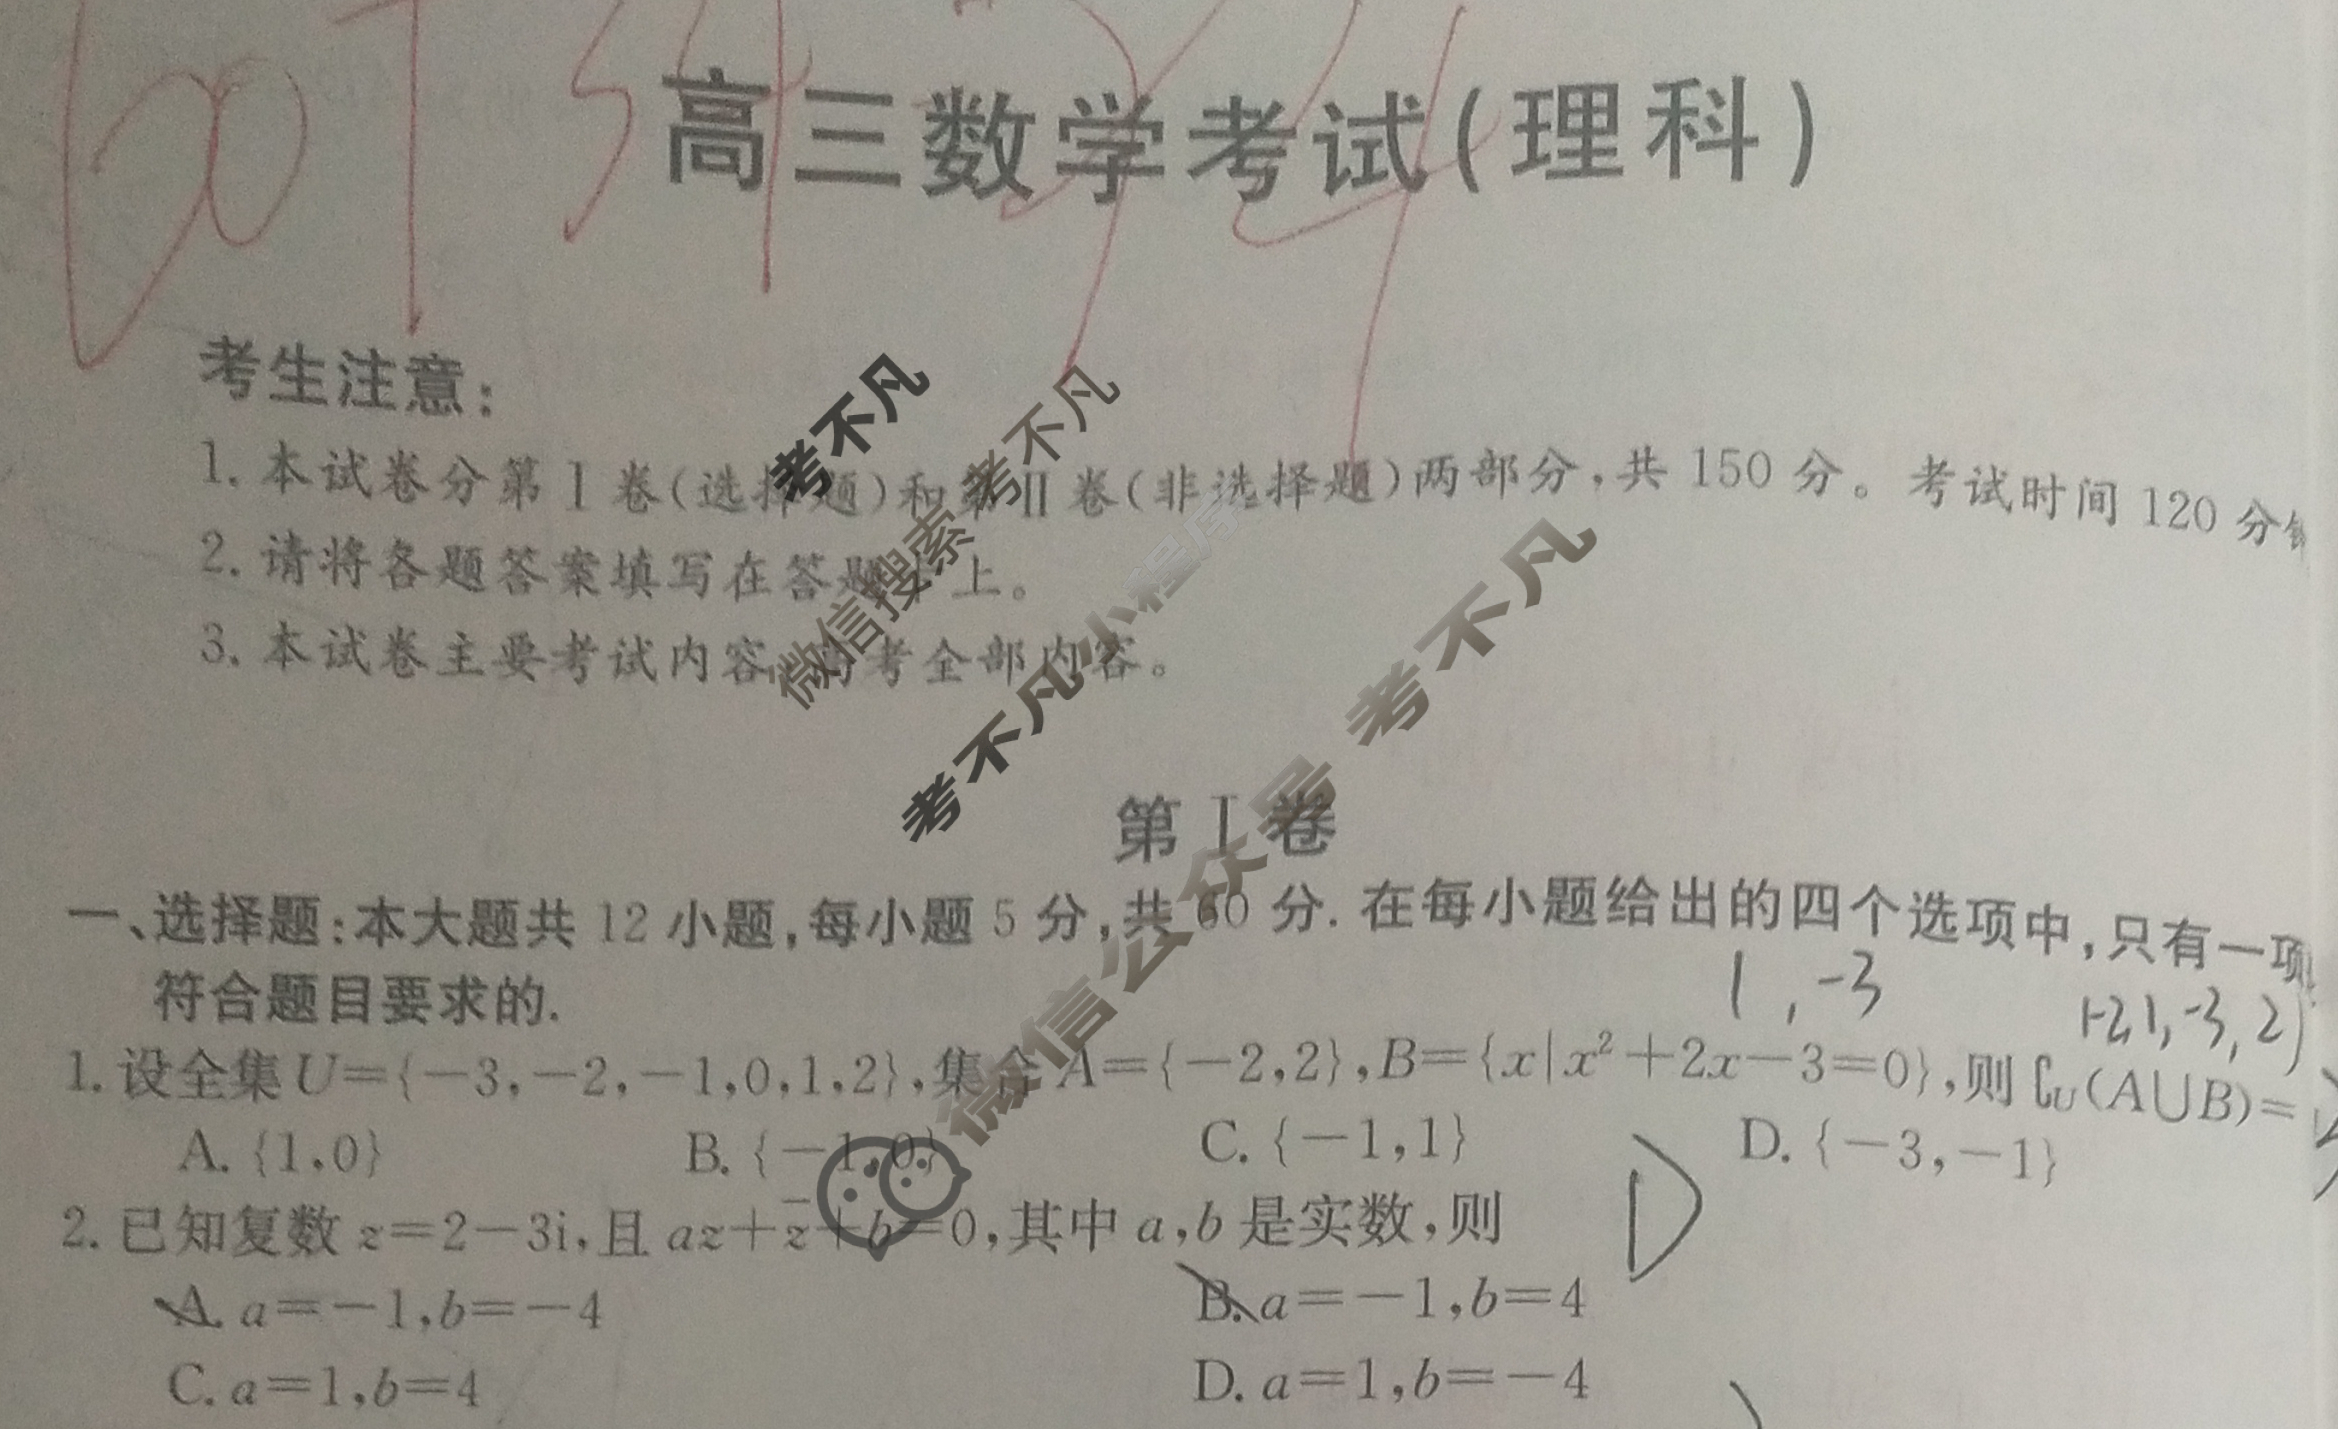 高三数学考试(理科)
考生注意:
1. 本试卷分第Ⅰ卷(选择题)和第Ⅱ卷(非选择题)两部分,共 150 分。考试时间 120 分钟
2. 请将各题答案填写在答题卡上。
3. 本试卷主要考试内容:高考全部内容。
考不凡
微信搜索 考不凡
考不凡小程序
微信公众号 考不凡
第Ⅰ卷
一、选择题:本大题共 12 小题,每小题 5 分,共 60 分. 在每小题给出的四个选项中,只有一项
符合题目要求的.
1, -3
-2,1,-3,2}
1. 设全集U={-3,-2,-1,0,1,2},集合A={-2,2},B={x|x²+2x-3=0},则∁U(A∪B)=
A. {1,0} B. {-1,0} C. {-1,1} D. {-3,-1}
2. 已知复数 z=2-3i,且 az+z̄+b=0,其中 a,b 是实数,则
D
A. a=-1,b=-4 B. a=-1,b=4
C. a=1,b=4 D. a=1,b=-4